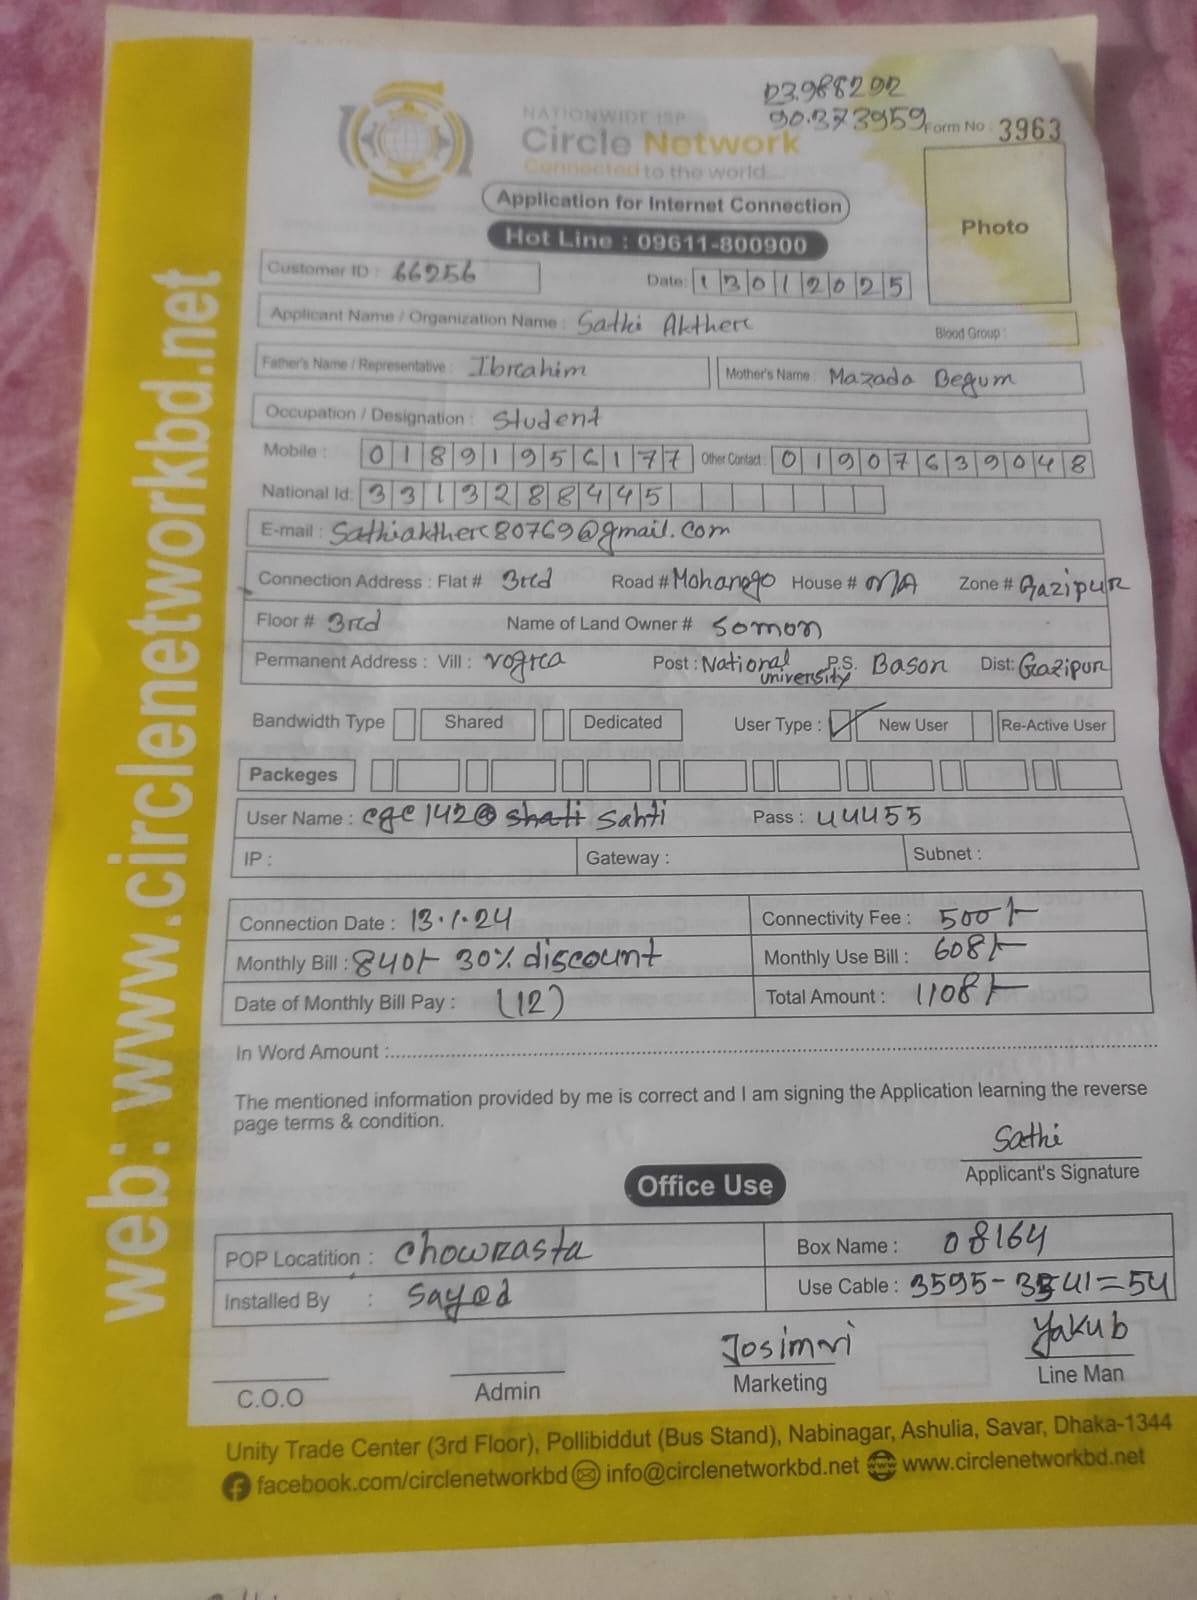 23.988292
90.373959
NATIONWIDE ISP
Form No : 3963
Circle Network
Connected to the world...
Application for Internet Connection
Photo
Hot Line : 09611-800900
Customer ID : 66256
Date: 13012025
Applicant Name / Organization Name : Sathi Akther
Blood Group :
Father's Name / Representative : Ibrahim
Mother's Name : Mazada Begum
Occupation / Designation : Student
Mobile : 01891956177 Other Contact : 01907639048
National Id: 3313288445
E-mail : Sathiakther80769@gmail.com
Connection Address : Flat # 3rd Road # Mohanogo House # N/A Zone # Gazipur
Floor # 3rd Name of Land Owner # Somon
Permanent Address : Vill : vogra Post : National university P.S. Bason Dist: Gazipur
Bandwidth Type Shared Dedicated User Type : ✓ New User Re-Active User
Packeges
User Name : cgc142@ shati Sahti Pass : 44455
IP : Gateway : Subnet :
Connection Date : 13.1.24 Connectivity Fee : 500/-
Monthly Bill : 840/- 30% discount Monthly Use Bill : 608/-
Date of Monthly Bill Pay : (12) Total Amount : 1108/-
In Word Amount :
The mentioned information provided by me is correct and I am signing the Application learning the reverse
page terms & condition.
Sathi
Applicant's Signature
Office Use
POP Locatition : Chowrasta Box Name : 08164
Installed By : Sayed Use Cable : 3595-3541=54
Josimri Yakub
C.O.O Admin Marketing Line Man
Unity Trade Center (3rd Floor), Pollibiddut (Bus Stand), Nabinagar, Ashulia, Savar, Dhaka-1344
facebook.com/circlenetworkbd info@circlenetworkbd.net www.circlenetworkbd.net
web: www.circlenetworkbd.net